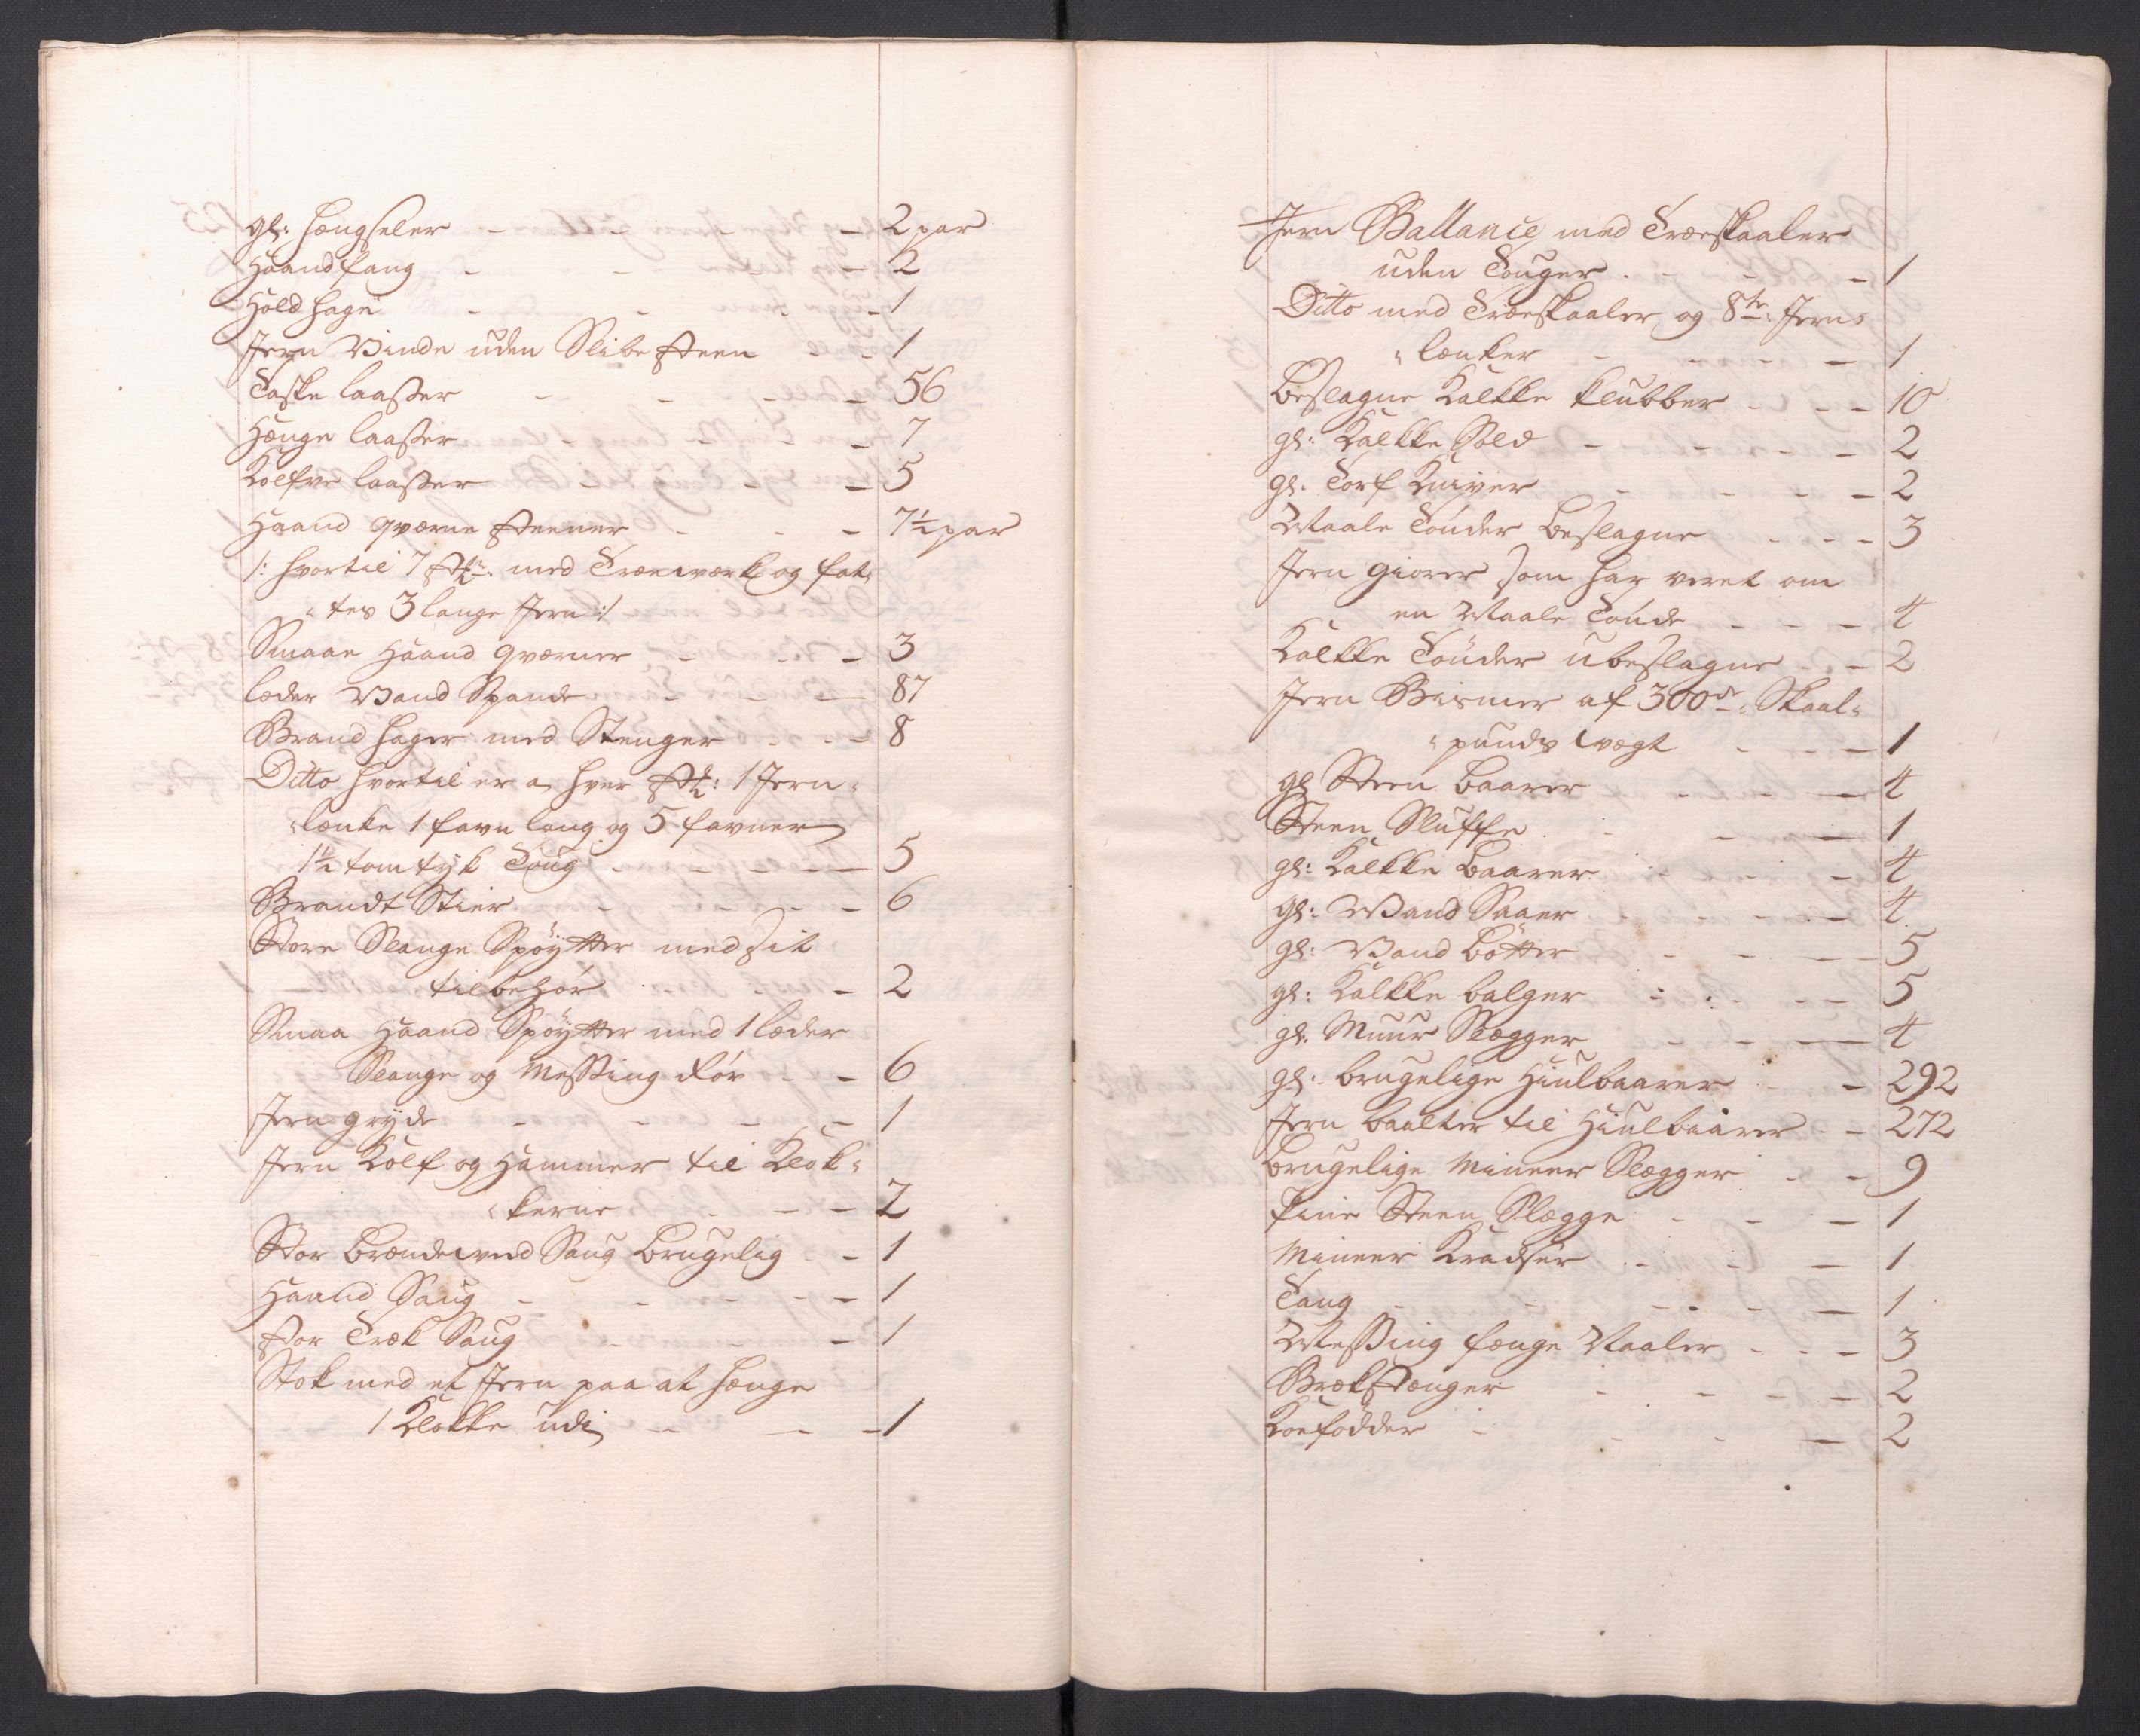 gl: hængseler - - - - 2 par
Haandfang - - - - 2
Hold hage - - - - 1
Jern Vinde uden Slibe steen - - 1
Taske laaßer - - - - 56
Hænge laaßer - - - 7
Kolfve laaßer - - - 5
Haand qværne steener - - - 7½ par
/: hvortil 7 stk: med Træewærk og fat-
tes 3 lange Jern :/
Smaae Haand qværner - - - 3
læder Vand Spande - - - 87
Brand hager med Stenger - - - 8
Ditto hvortil er a hver stk: 1 Jern-
lænke 1 favn lang og 5 favner
1½ tom tyk Toug - - - - 5
Brandt Stier - - - - 6
Store Slange Spøytter med sit
tilbehør - - - 2
Smaa Haand Spøytter med 1 læder
Slange og Messing Rør - - 6
Jern gryde - - - - 1
Jern Kolf og Hammer til Klok-
kerne - - - 2
Stor Brændeved Saug Brugelig - 1
Haand Saug - - - - 1
stor Træk Saug - 1
Stok med et Jern paa at hænge
1 Klokke udi - - - 1
Jern Ballance med Træeskaaler
uden Touger - - - 1
Ditto med Træeskaaler og 8te Jern-
lænker - - - - 1
Beslagne Kalkke klubber - - - 10
gl: Kalkke Sold - - - - 2
gl: Torf Kniver - - - - 2
Maale Tönder Beslagne - - - 3
Jern giorer som har veret om
en Maale Tönde - - - 4
Kalkke Tönder ubeslagne - - 2
Jern Bismer af 300de Skaal-
punds wægt - - - 1
gl Steen Baarer - - - 4
Steen Sluffe - - - 1
gl: Kalkke Baarer - - - 4
gl: Vand Saaer - - - 4
gl: Vand Bøtter - - - 5
gl: Kalkke balger - - - - 5
gl. Muur Slægger - - - 4
gl: brugelige Hiulbaarer - - 292
Jern baalter til Hiulbaarer - - 272
Brugelige Mineer Slægger - - 9
fiin Steen Slægge - - - 1
Mineer Kradser - - - 1
Tang - - - - 1
Messing fænge Naaler - - - 3
Brækstænger - - - - 2
Koefødder - - - - 2